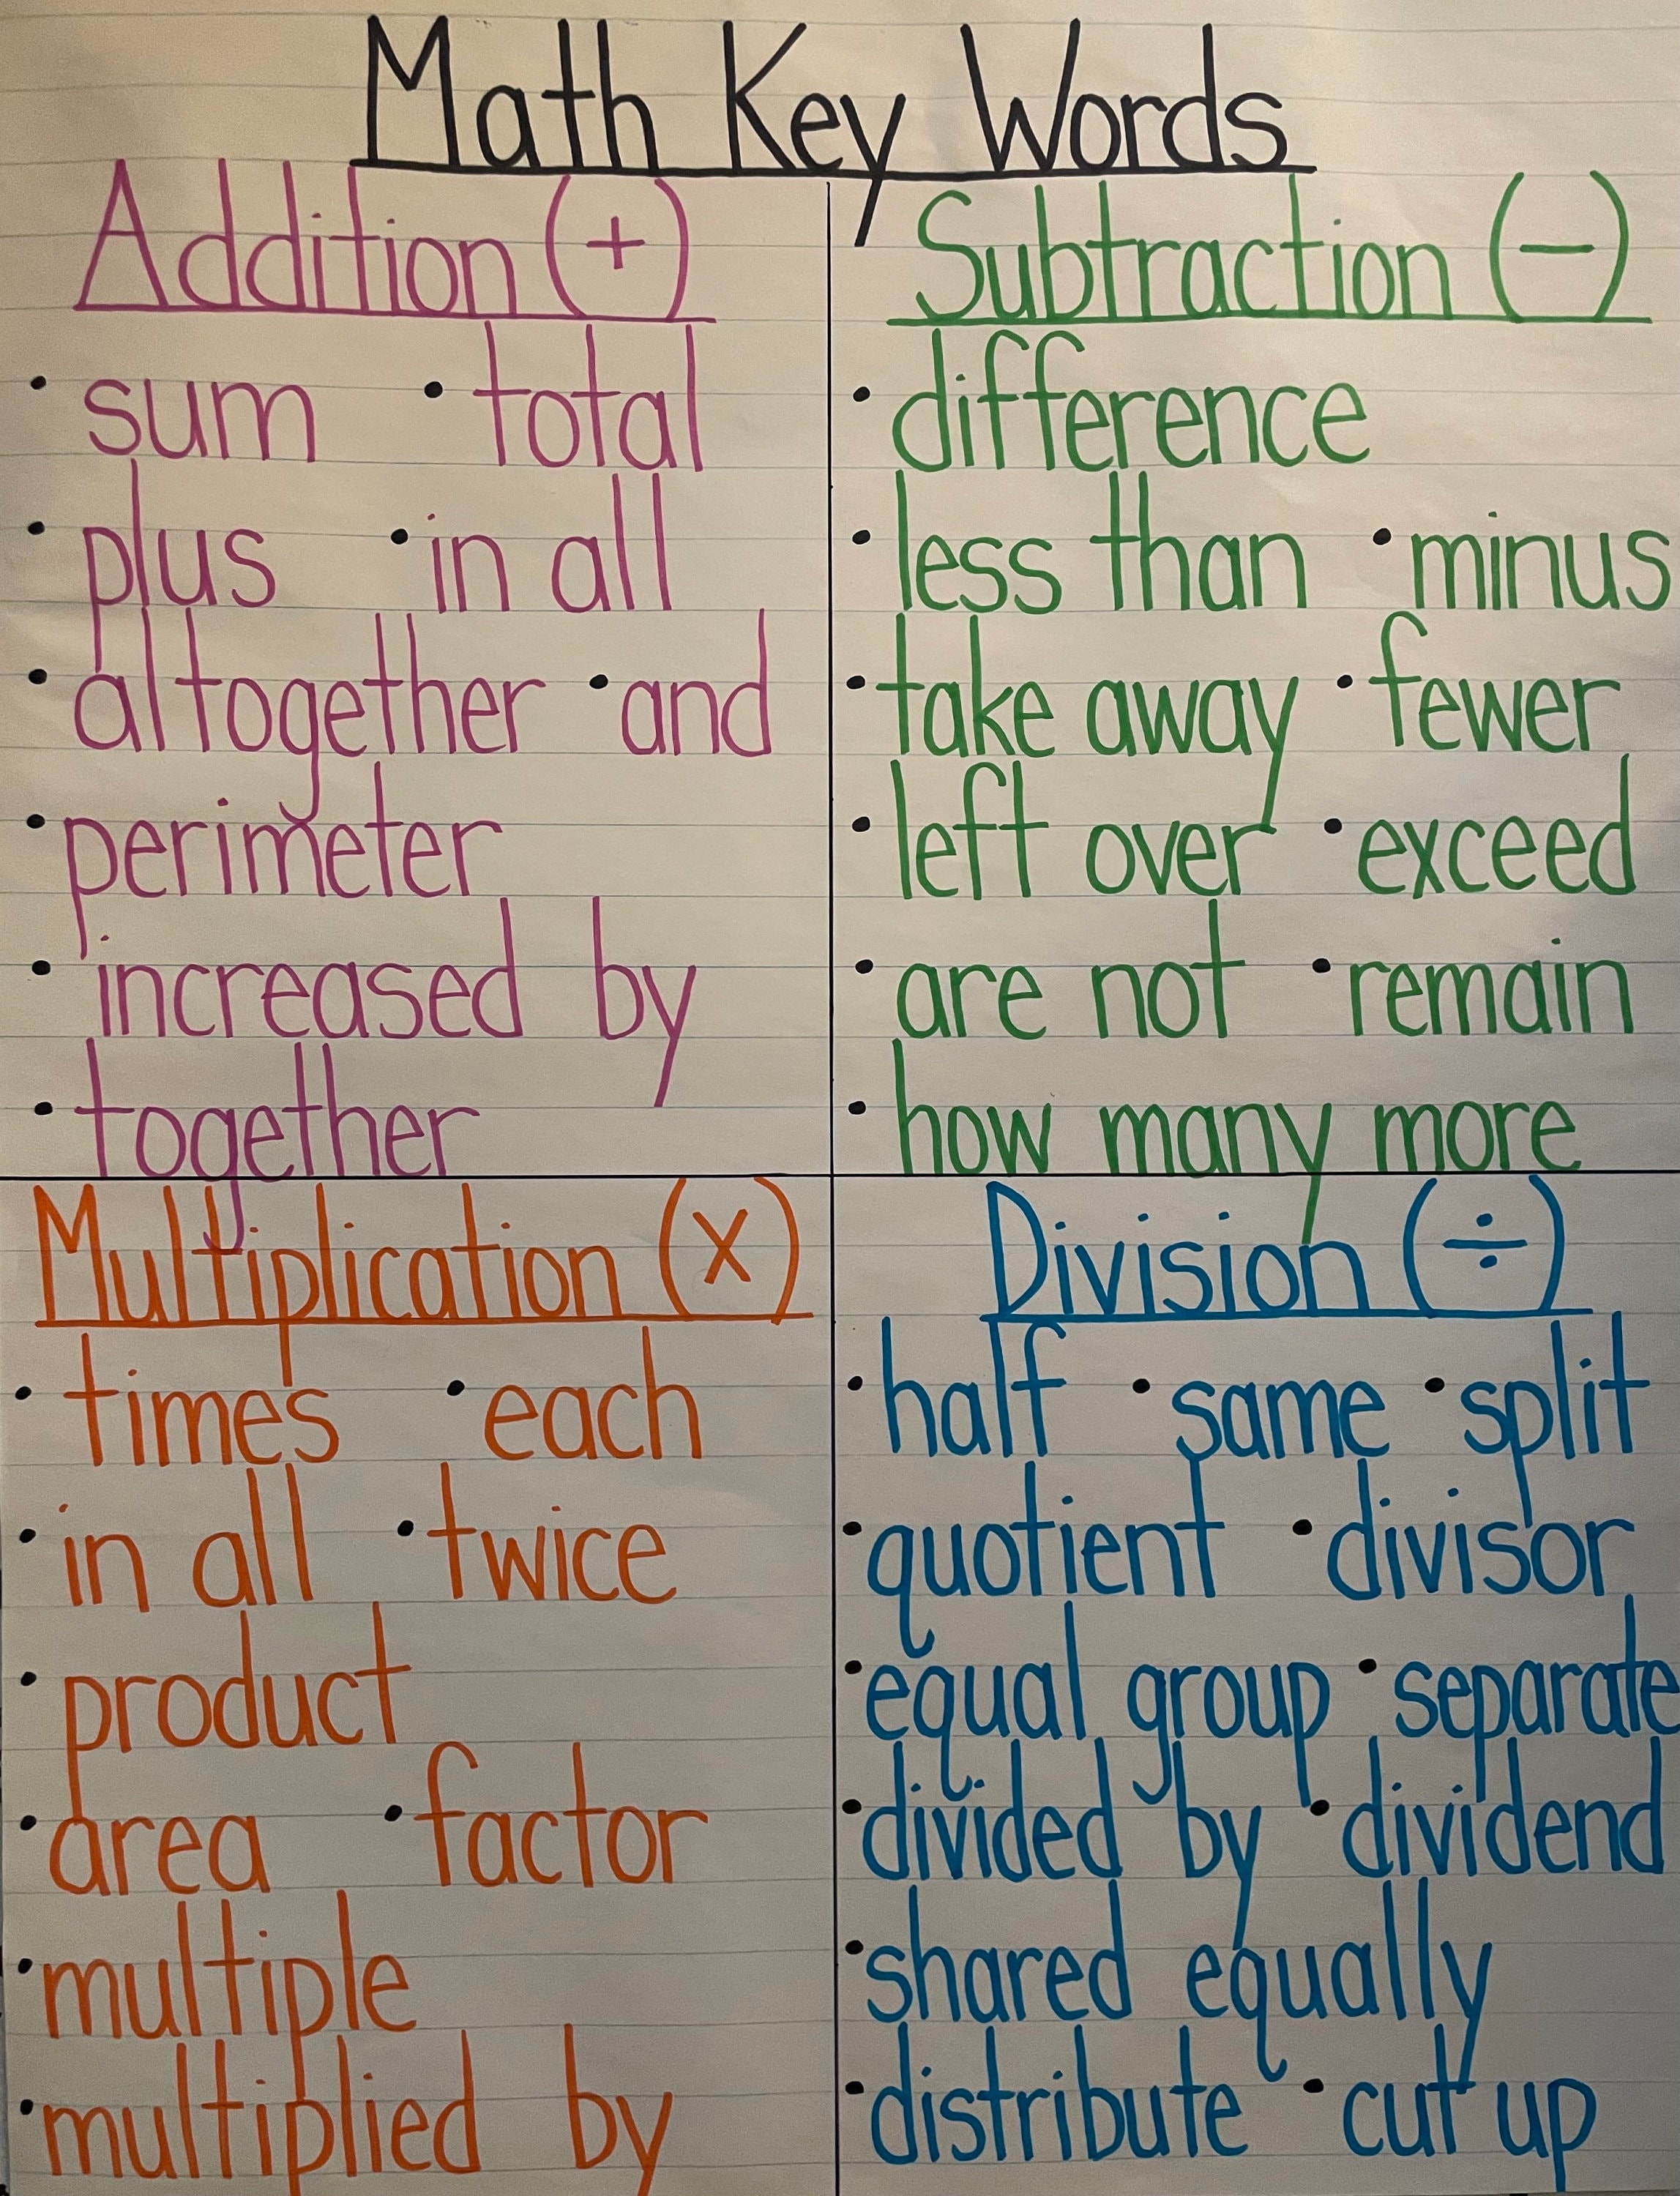 Math Key Words
Addition (+)
• sum • total
• plus • in all
• altogether • and
• perimeter
• increased by
• together
Subtraction (−)
• difference
• less than • minus
• take away • fewer
• left over • exceed
• are not • remain
• how many more
Multiplication (x)
• times • each
• in all • twice
• product
• area • factor
• multiple
• multiplied by
Division (÷)
• half • same • split
• quotient • divisor
• equal group • separate
• divided by • dividend
• shared equally
• distribute • cut up